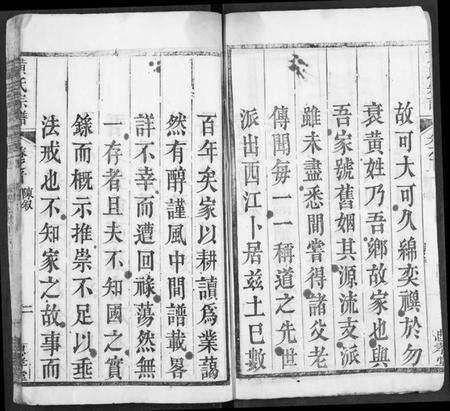 故可大可久綿奕禩於勿
衰黃姓乃吾鄉故家也與
吾家號舊姻其源流支派
雖未盡悉間嘗得諸父老
傳聞每一一稱道之先世
派出西江卜居茲土巳數
百年矣家以耕讀爲業藹
然有醇謹風中間譜載畧
詳不幸而遭回祿蕩然無
一存者且夫不知國之實
錄而概示推崇不足以垂
法戒也不知家之故事而
黃氏宗譜
陳敘
二